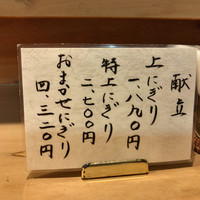 献立
上にぎり
一、八九〇円
特上にぎり
二、七〇〇円
おまかせにぎり
四、三二〇円